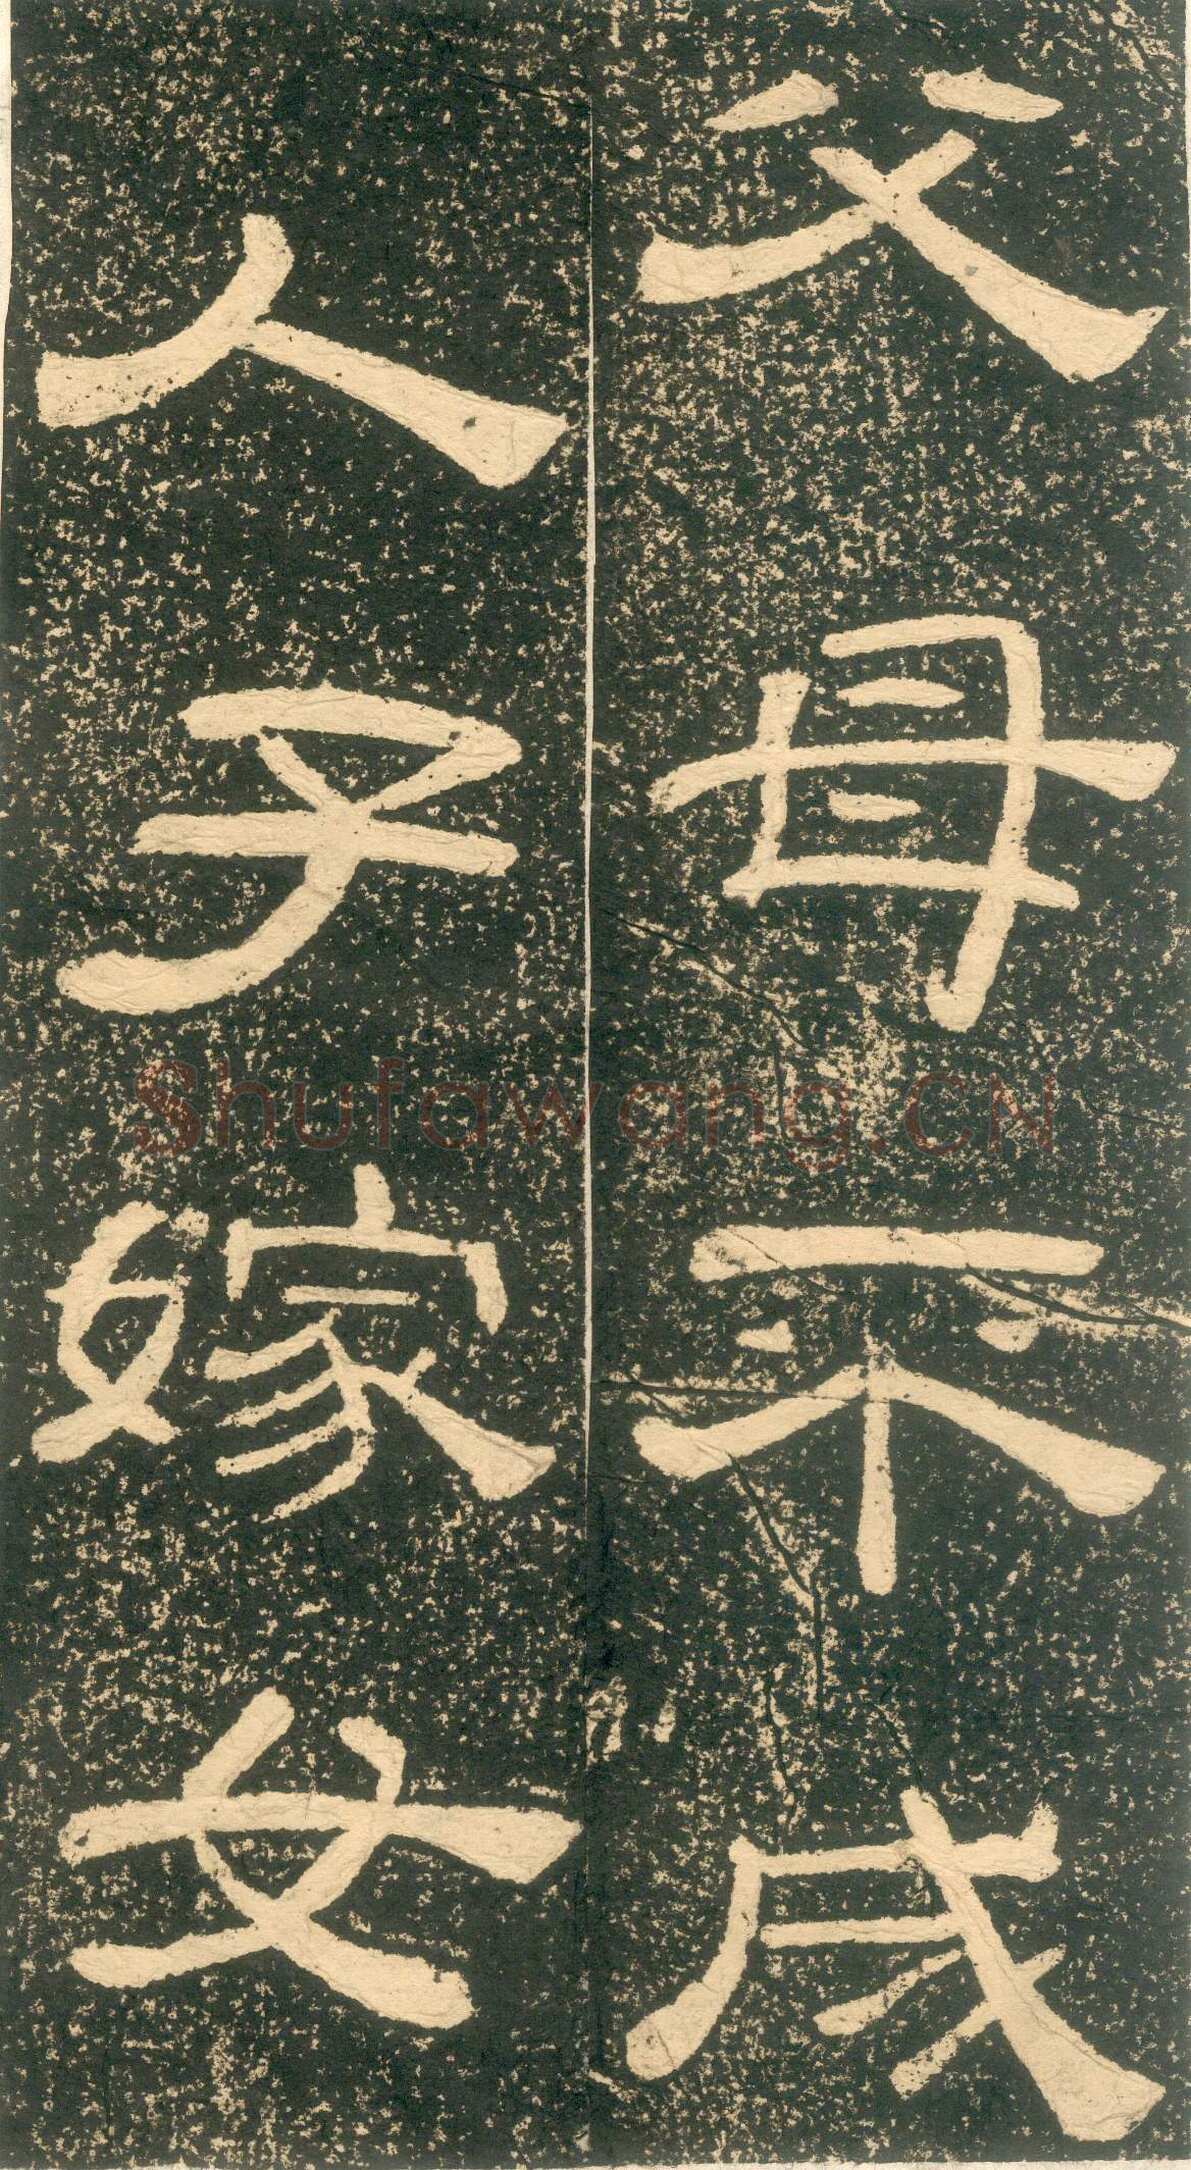 父母不成
人子嫁女
Shufawang.CN